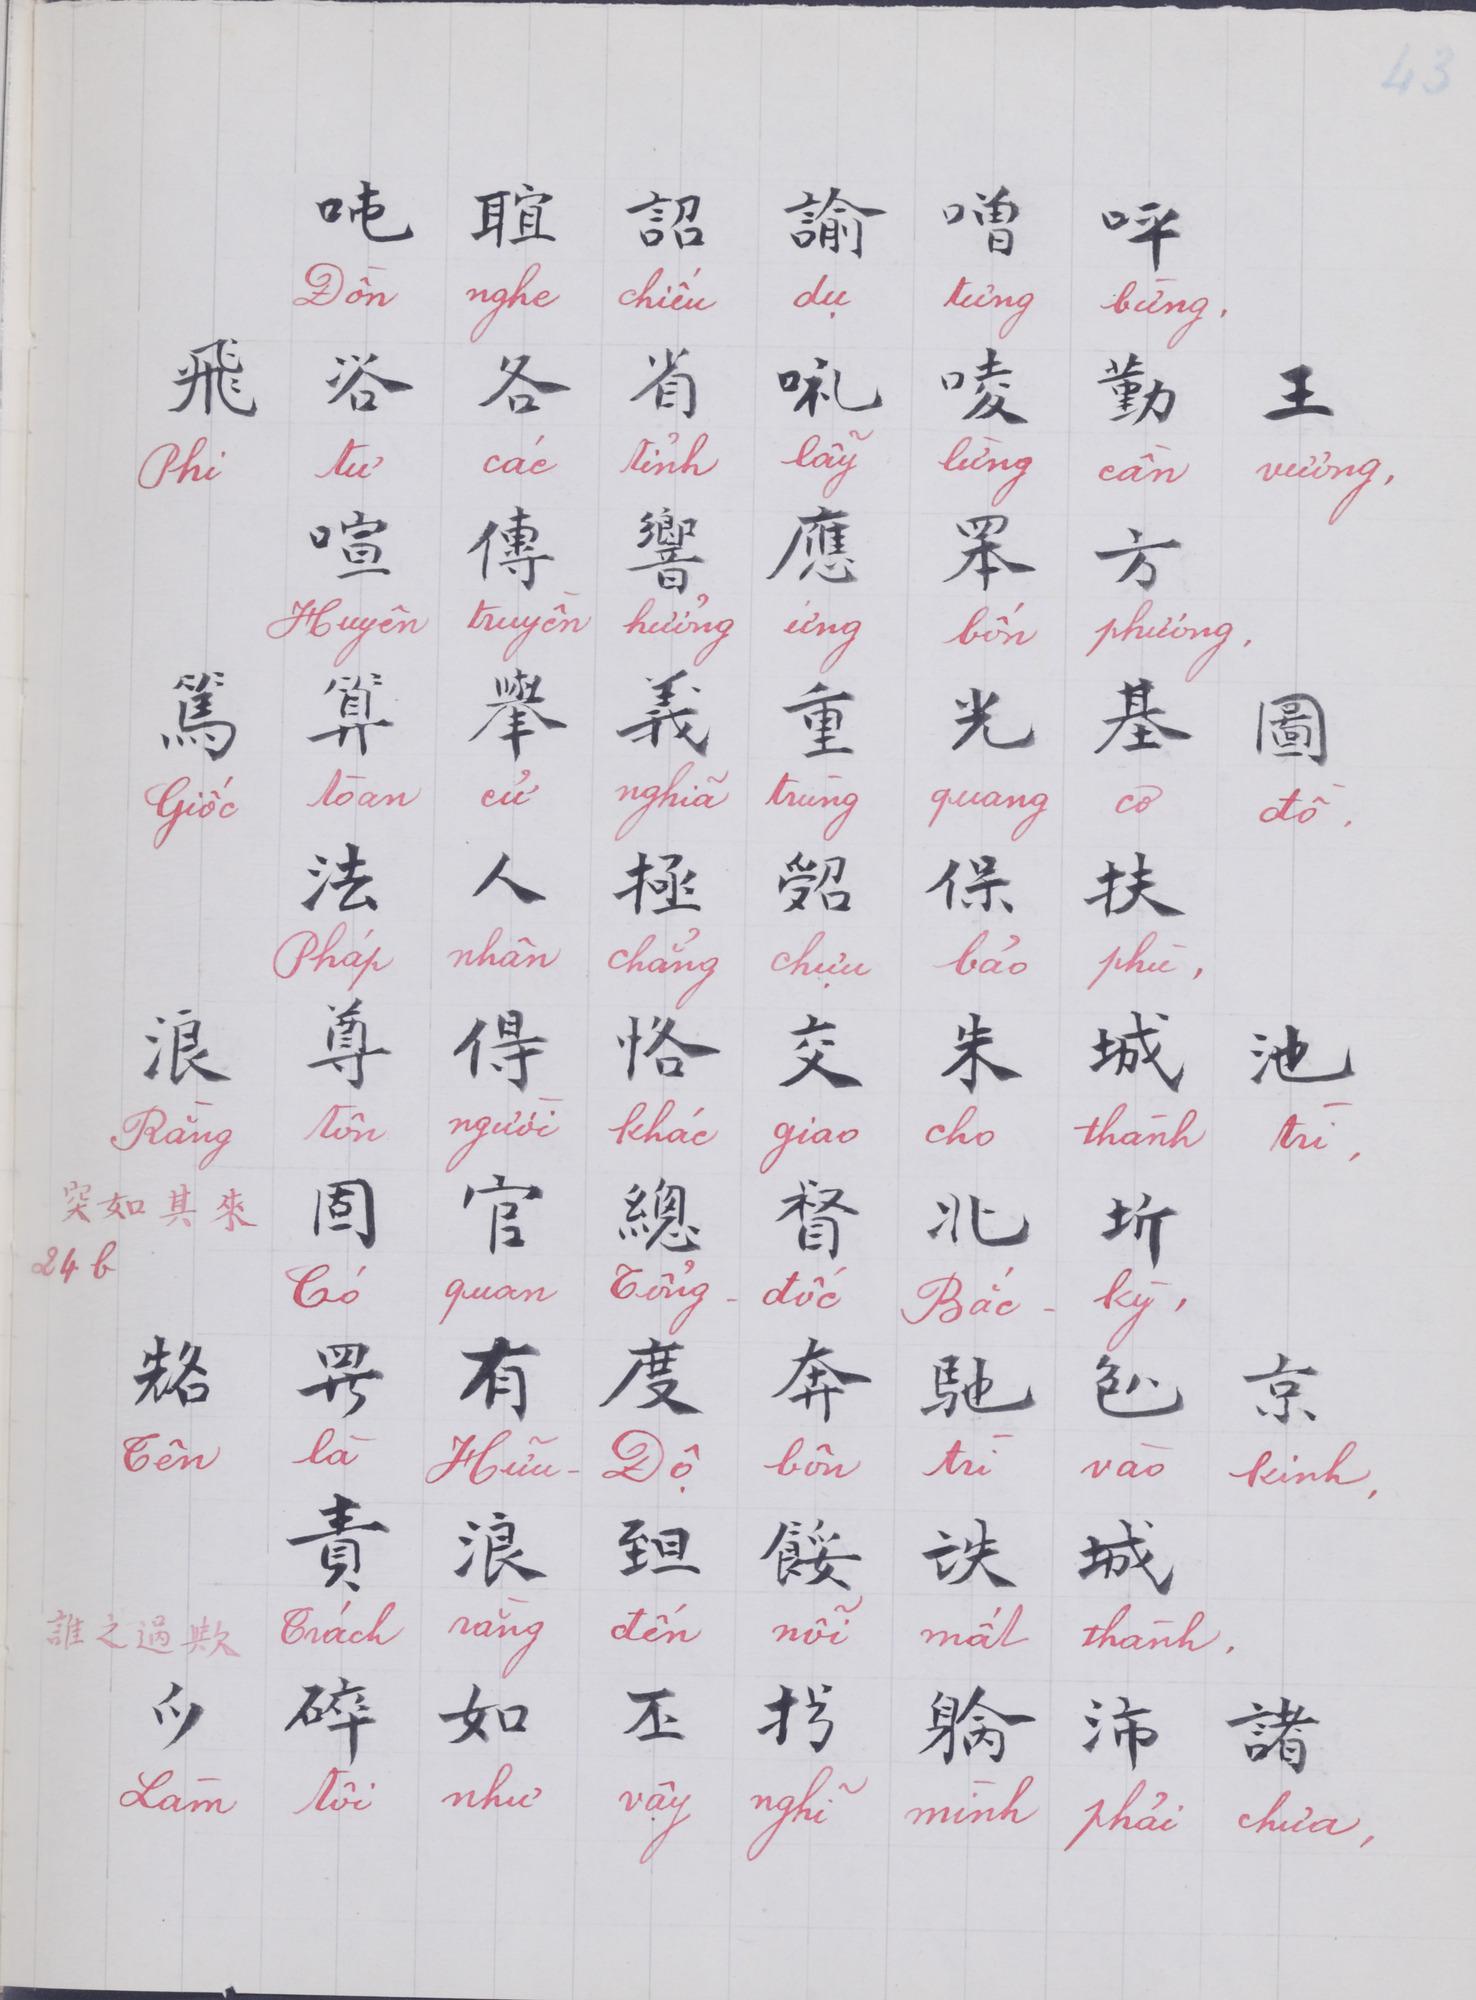 43
吨 𦖻 詔 諭 噌 呯
Đồn nghe chiếu dụ tưng bừng,
飛 咨 各 省 唻 唛 勤 王
Phi tư các tỉnh lẫy lừng cần vương,
喧 傳 響 應 罘 方
Huyên truyền hưởng ứng bốn phương,
篤 算 舉 義 重 光 基 圖
Giốc toan cử nghĩa trùng quang cơ đồ.
法 人 極 𠹾 保 扶
Pháp nhân chẳng chựu bảo phù,
浪 尊 得 恪 交 朱 城 池
Rằng tôn người khác giao cho thành trì,
突如其來
24 b
固 官 總 督 北 圻
Có quan Tổng-đốc Bắc-kỳ,
𠸜 𱺵 有 度 奔 馳 𠓨 京
Tên là Hữu-Độ bôn trì vào kinh,
責 浪 𦤾 餒 𠅒 城
Trách rằng đến nỗi mất thành,
誰之過歟
𫜵 碎 如 丕 𢪀 𨉟 沛 諸
Làm tôi như vậy nghĩ mình phải chưa,